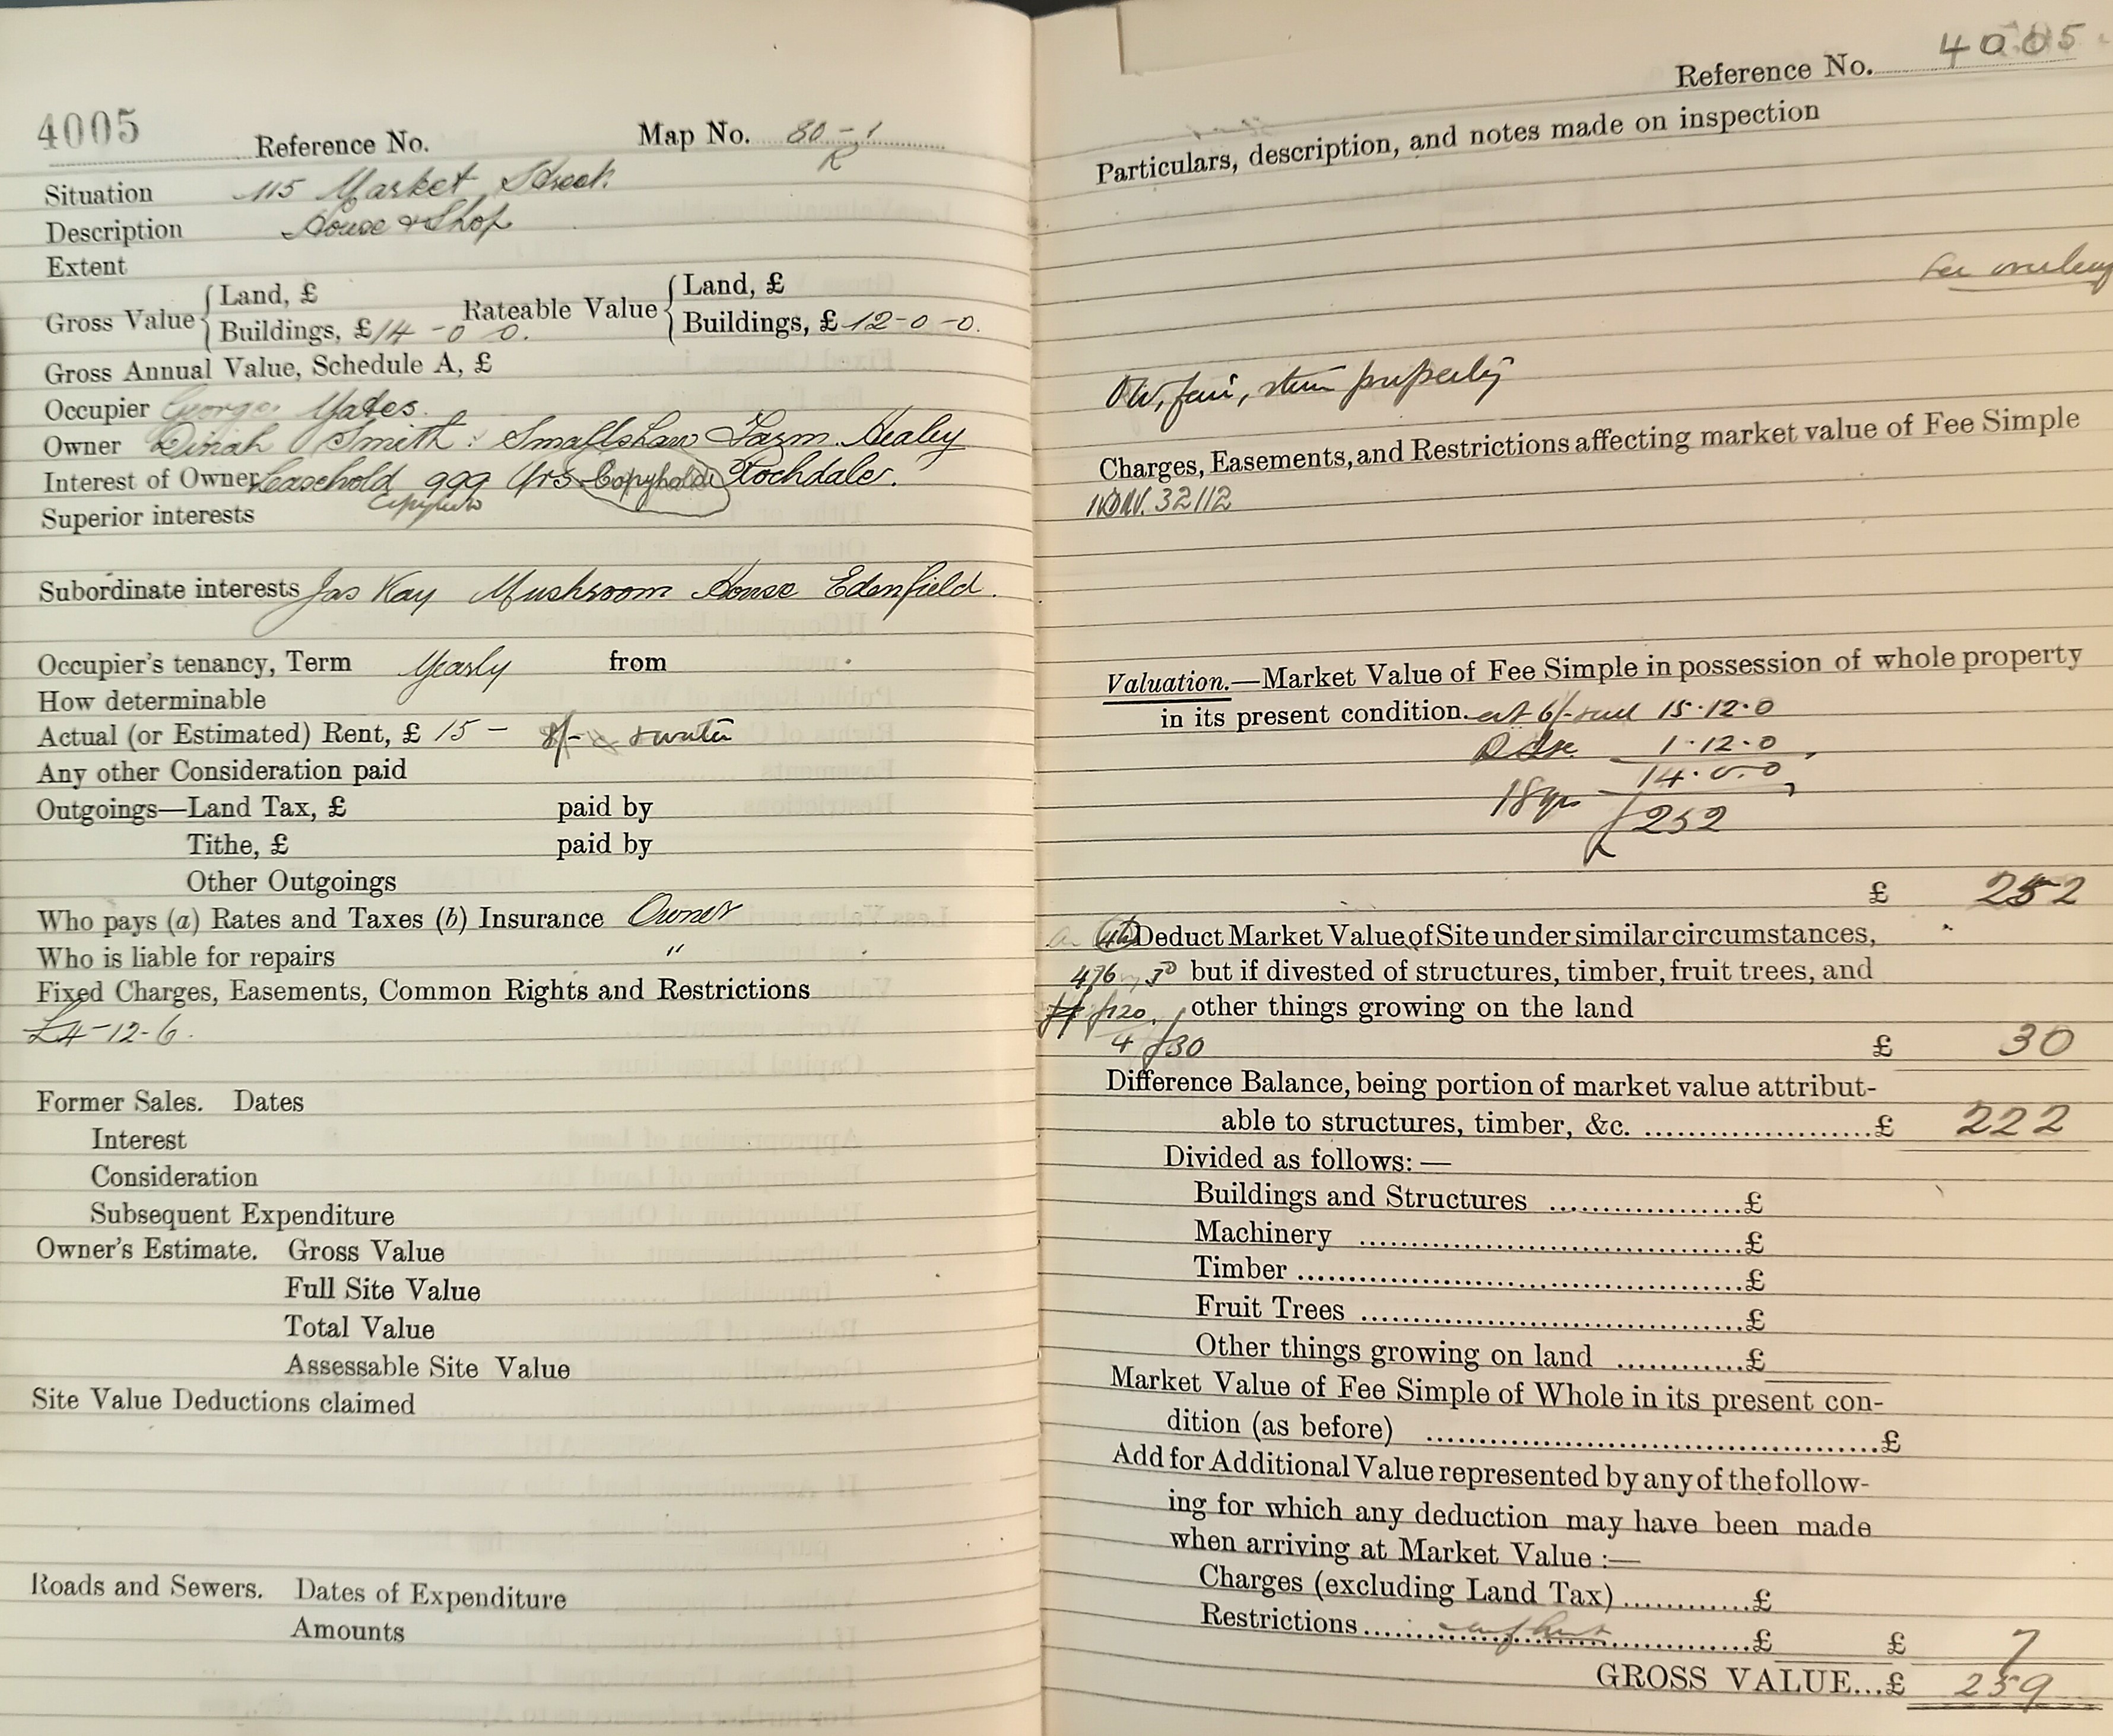 4005 Reference No. Map No. 80-1
R
Situation 115 Market Street.
Description House & Shop
Extent
Gross Value { Land, £ Rateable Value { Land, £
Buildings, £ 14-0 0. Buildings, £ 12-0-0.
Gross Annual Value, Schedule A, £
Occupier George Yates.
Owner Dinah Smith: Smallshaw Farm Healey
Interest of Owner Leasehold 999 Yrs Copyhold Rochdale.
Superior interests
Subordinate interests Jas Kay Mushroom House Edenfield.
Occupier's tenancy, Term Yearly from
How determinable
Actual (or Estimated) Rent, £ 15 - & water
Any other Consideration paid
Outgoings—Land Tax, £ paid by
Tithe, £ paid by
Other Outgoings
Who pays (a) Rates and Taxes (b) Insurance Owner
Who is liable for repairs "
Fixed Charges, Easements, Common Rights and Restrictions
£4-12-6.
Former Sales. Dates
Interest
Consideration
Subsequent Expenditure
Owner's Estimate. Gross Value
Full Site Value
Total Value
Assessable Site Value
Site Value Deductions claimed
Roads and Sewers. Dates of Expenditure
Amounts
Reference No. 4005
Particulars, description, and notes made on inspection
See overleaf
fair, property
Charges, Easements, and Restrictions affecting market value of Fee Simple
32112
Valuation.—Market Value of Fee Simple in possession of whole property
in its present condition. at 6/- 15.12.0
1.12.0
14.0.0
18 yrs
£252
£ 252
Deduct Market Value of Site under similar circumstances,
476 but if divested of structures, timber, fruit trees, and
£120. other things growing on the land
4 £30 £ 30
Difference Balance, being portion of market value attribut-
able to structures, timber, &c. ....................£ 222
Divided as follows:—
Buildings and Structures ..................£
Machinery ..................£
Timber ..................£
Fruit Trees ..................£
Other things growing on land ............£
Market Value of Fee Simple of Whole in its present con-
dition (as before) ..................£
Add for Additional Value represented by any of the follow-
ing for which any deduction may have been made
when arriving at Market Value :—
Charges (excluding Land Tax) ............£
Restrictions ..................£ £ 7
GROSS VALUE...£ 259